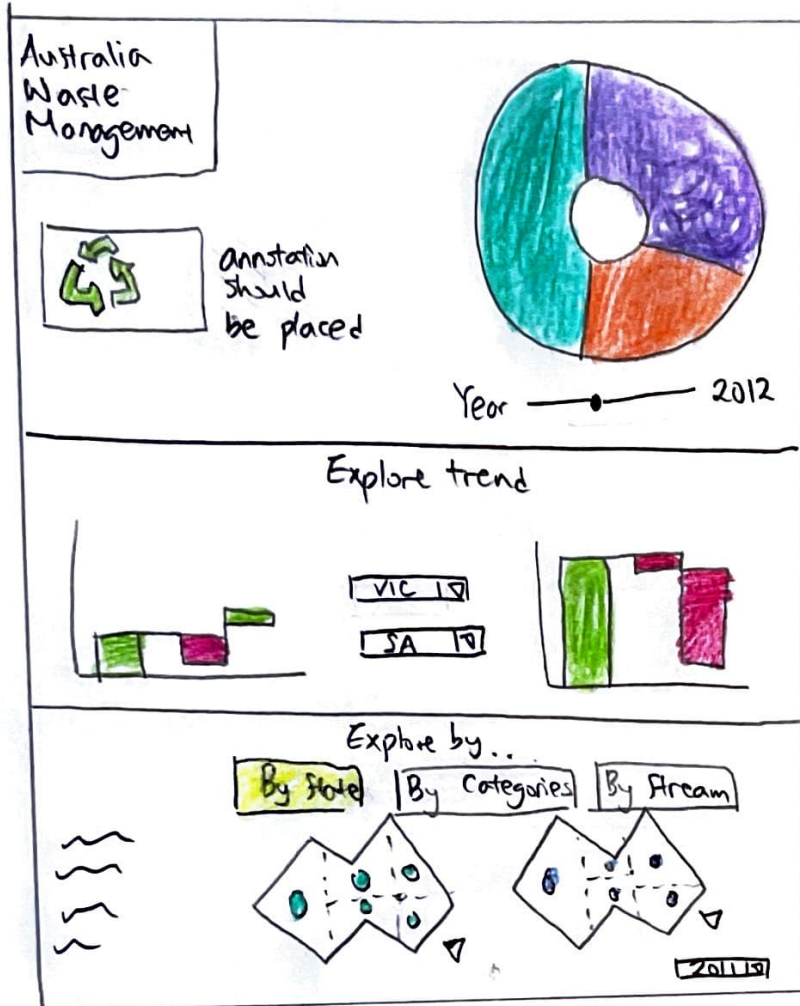 Australia
Waste
Management
annotation
should
be placed
Year 2012
Explore trend
VIC
SA
Explore by...
By State
By Categories
By Stream
2011